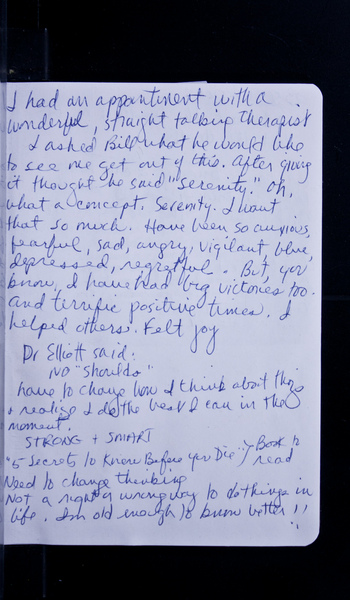 I had an appointment with a
wonderful, straight talking therapist
I asked Bill what he would like
to see me get out of this. After giving
it thought he said "serenity." Oh,
what a concept. Serenity. I want
that so much. Have been so anxious,
fearful, sad, angry, vigilant, blue,
depressed, regretful. But, you
know, I have had big victories too.
and terrific positive times. I
helped others. Felt joy
Dr Elliott said:
NO "shoulds"
have to change how I think about this
+ realize I do the best I can in the
moment.
STRONG + SMART
"5 Secrets to Know Before you Die" } Book to
read
Need to change thinking
Not a right or wrong way to do things in
life. I'm old enough to know better!!